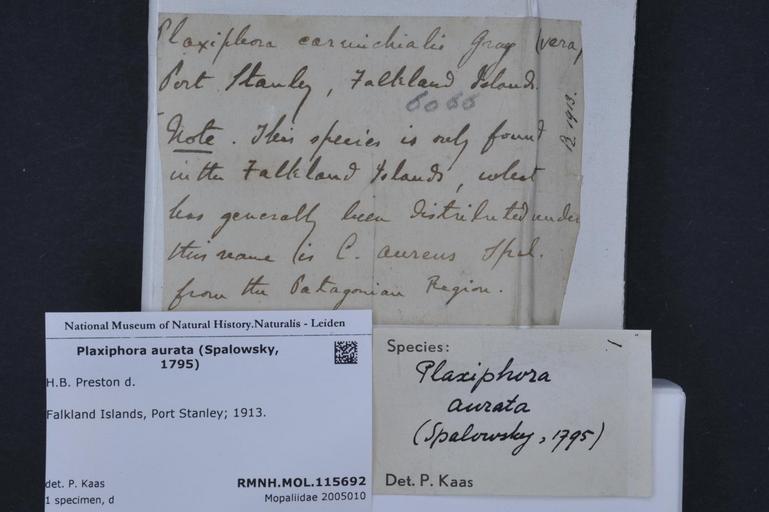 Plaxiphora carmichialis Gray (vera)
Port Stanley, Falkland Islands.
6066
12.1913.
Note. This species is only found
in the Falkland Islands, what
has generally been distributed under
this name is C. aureus Spal.
from the Patagonian Region.
National Museum of Natural History.Naturalis - Leiden
Plaxiphora aurata (Spalowsky,
1795)
H.B. Preston d.
Falkland Islands, Port Stanley; 1913.
det. P. Kaas
RMNH.MOL.115692
1 specimen, d
Mopaliidae 2005010
Species:
1
Plaxiphora
aurata
(Spalowsky, 1795)
Det. P. Kaas